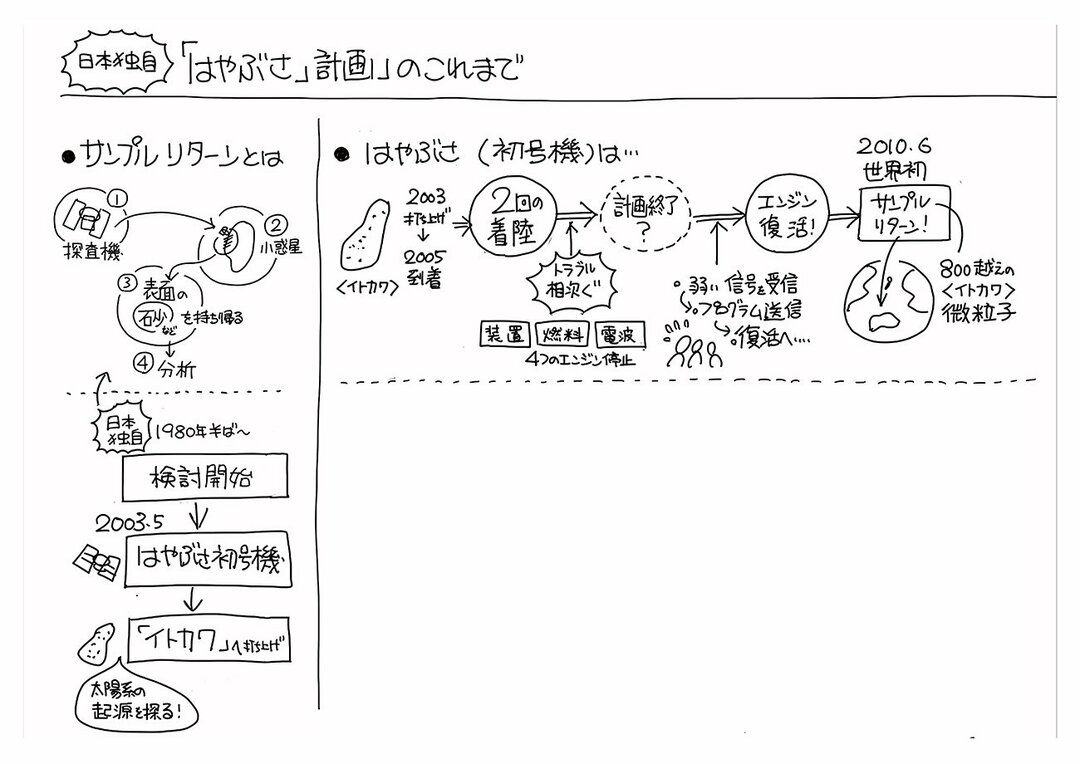 日本独自
「はやぶさ」計画」のこれまで
●サンプルリターンとは
①
探査機
②
小惑星
③
表面の
石砂
など
を持ち帰る
④分析
日本
独自
1980年そば〜
検討開始
2003.5
はやぶさ初号機
「イトカワ」へ打ち上げ
太陽系の
起源を探る!
●はやぶさ(初号機)は…
<イトカワ>
2003
打ち上げ
↓
2005
到着
2回の
着陸
トラブル
相次ぐ
装置 燃料 電波
4つのエンジン停止
計画終了
?
弱い信号を受信
プログラム送信
復活へ‥‥
エンジン
復活!
2010.6
世界初
サンプル
リターン!
800越えの
<イトカワ>
微粒子